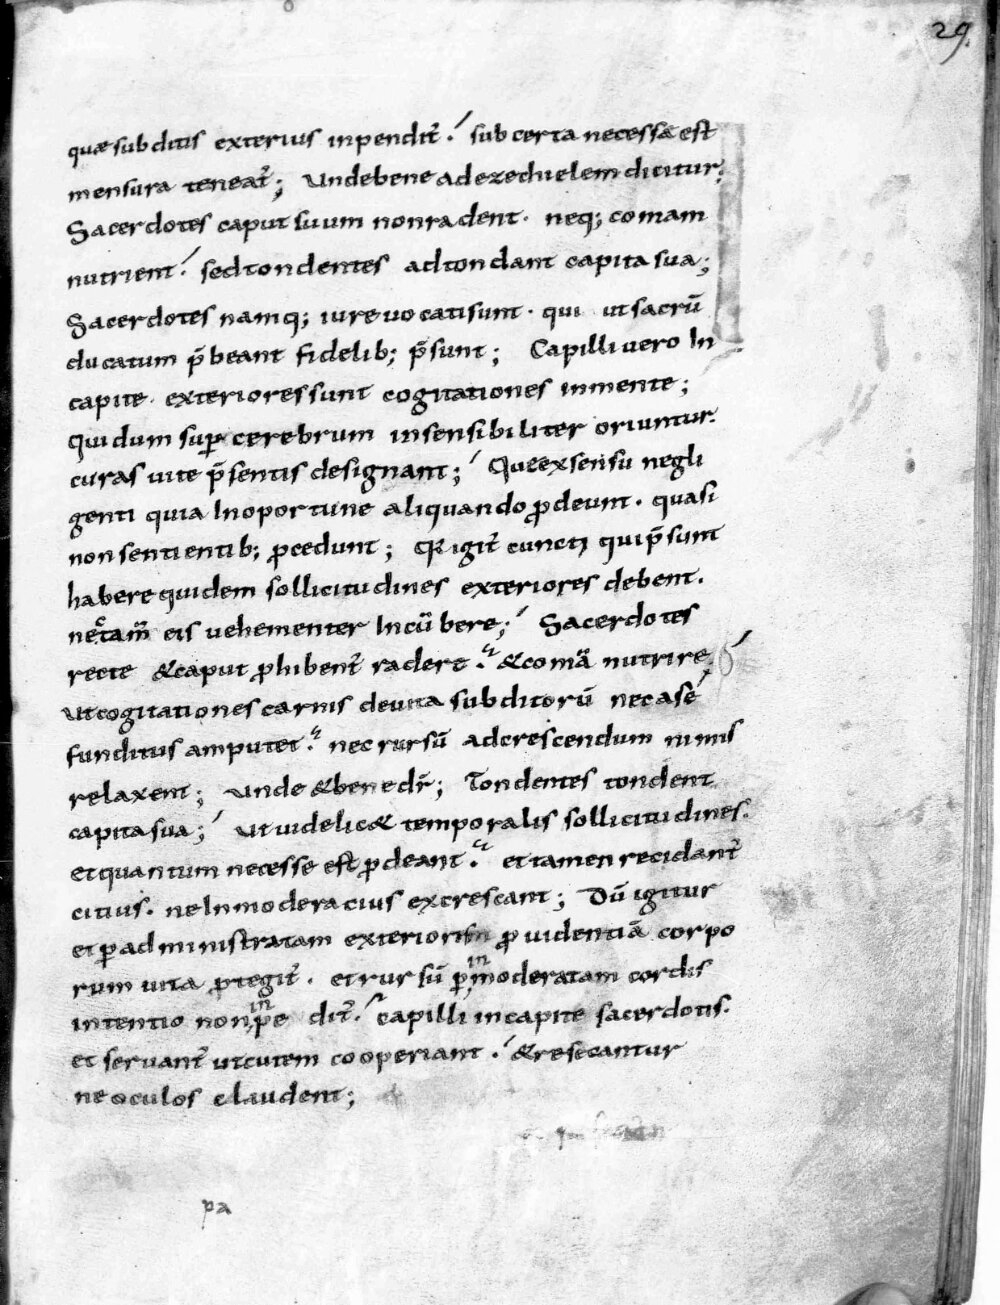 29.
quæ subditis exterius inpendit̄. sub certa necessē est
mensura teneat̄; Unde bene ad ezechielem dicitur;
Sacerdotes caput suum non radent. neq; comam
nutrient. sed tondentes adtondant capita sua;
Sacerdotes namq; iure vocati sunt. qui ut sacrū
ducatum p̄beant fidelib; p̄sunt; Capilli vero In
capite. exteriores sunt cogitationes in mente;
qui dum sup cerebrum insensibiliter oriuntur.
curas vite p̄sentis designant; Que ex sensu negli
genti quia Inoportune aliquando ꝓdeunt. quasi
non sentientib; ꝓcedunt; Q̄ igit̄ cuncti qui p̄sunt
habere quidem sollicitudines exteriores debent.
nec̄ tam̄ eis vehementer Incūbere; Sacerdotes
recte & caput ꝓhibent̄ radere. & comā nutrire.
Ut cogitationes carnis de vita subditorū nec a sē
funditus amputet. nec rursū ad crescendum nimis
relaxent; Unde & bene dr̄; Tondentes tondent
capita sua; Ut videlic& temporalis sollicitudines.
et quantum necesse est ꝓdeant. et tamen recidant̄
citius. ne Inmoderacius excrescant; Dū igitur
et ꝑ administratam exteriorem ꝓvidentiā corpo
rum vita ꝓtegit̄. et rursū ꝑ inmoderatam cordis
intentio non inpedit̄. capilli in capite sacerdotis.
et servant̄ ut cutem cooperiant. & resecantur
ne oculos claudent;
pa